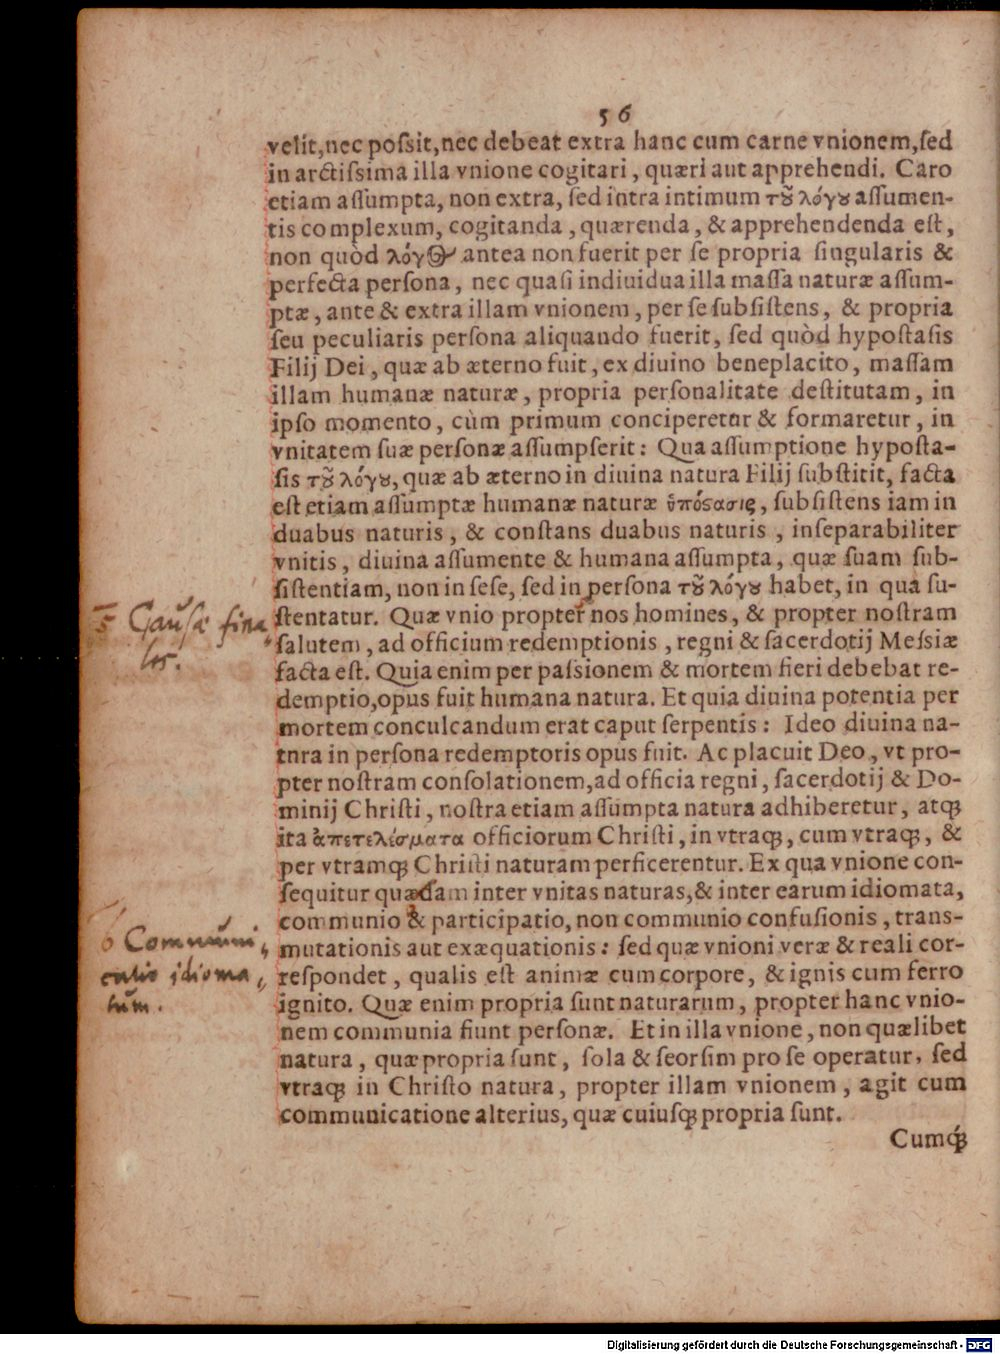 56
velit, nec poſsit, nec debeat extra hanc cum carne vnionem, ſed
in arctiſsima illa vnione cogitari, quæri aut apprehendi. Caro
etiam aſſumpta, non extra, ſed intra intimum τȣ͂ λόγȣ aſſumen-
tis complexum, cogitanda, quærenda, & apprehendenda eſt,
non quòd λόγΘ antea non fuerit per ſe propria ſingularis &
perfecta perſona, nec quaſi indiuidua illa maſſa naturæ aſſum-
ptæ, ante & extra illam vnionem, per ſe ſubſiſtens, & propria
ſeu peculiaris perſona aliquando fuerit, ſed quòd hypoſtaſis
Filij Dei, quæ ab æterno fuit, ex diuino beneplacito, maſſam
illam humanæ naturæ, propria perſonalitate deſtitutam, in
ipſo momento, cùm primum conciperetur & formaretur, in
vnitatem ſuæ perſonæ aſſumpſerit: Qua aſſumptione hypoſta-
ſis τȣ͂ λόγȣ, quæ ab æterno in diuina natura Filij ſubſtitit, facta
eſt etiam aſſumptæ humanæ naturæ ὑπόϛασις, ſubſiſtens iam in
duabus naturis, & conſtans duabus naturis, inſeparabiliter
vnitis, diuina aſſumente & humana aſſumpta, quæ ſuam ſub-
ſiſtentiam, non in ſeſe, ſed in perſona τȣ͂ λόγȣ habet, in qua ſu-
ſtentatur. Quæ vnio propter nos homines, & propter noſtram
ſalutem, ad officium redemptionis, regni & ſacerdotij Meſsiæ
facta eſt. Quia enim per paſsionem & mortem fieri debebat re-
demptio, opus fuit humana natura. Et quia diuina potentia per
mortem conculcandum erat caput ſerpentis: Ideo diuina na-
tnra in perſona redemptoris opus fuit. Ac placuit Deo, vt pro-
pter noſtram conſolationem, ad officia regni, ſacerdotij & Do-
minij Chriſti, noſtra etiam aſſumpta natura adhiberetur, atq́;
ita ἀπετελέσματα officiorum Chriſti, in vtraq́;, cum vtraq́;, &
per vtramq́; Chriſti naturam perficerentur. Ex qua vnione con-
ſequitur quædam inter vnitas naturas, & inter earum idiomata,
communio & participatio, non communio confuſionis, trans-
mutationis aut exæquationis: ſed quæ vnioni veræ & reali cor-
reſpondet, qualis eſt animæ cum corpore, & ignis cum ferro
ignito. Quæ enim propria ſunt naturarum, propter hanc vnio-
nem communia fiunt perſonæ. Et in illa vnione, non quælibet
natura, quæ propria ſunt, ſola & ſeorſim pro ſe operatur, ſed
vtraq́; in Chriſto natura, propter illam vnionem, agit cum
communicatione alterius, quæ cuiuſq́; propria ſunt.
Cumq́;
5 Cauſæ fina
les.
6 Communi
catio idioma
tum.
Digitalisierung gefördert durch die Deutsche Forschungsgemeinschaft - DFG